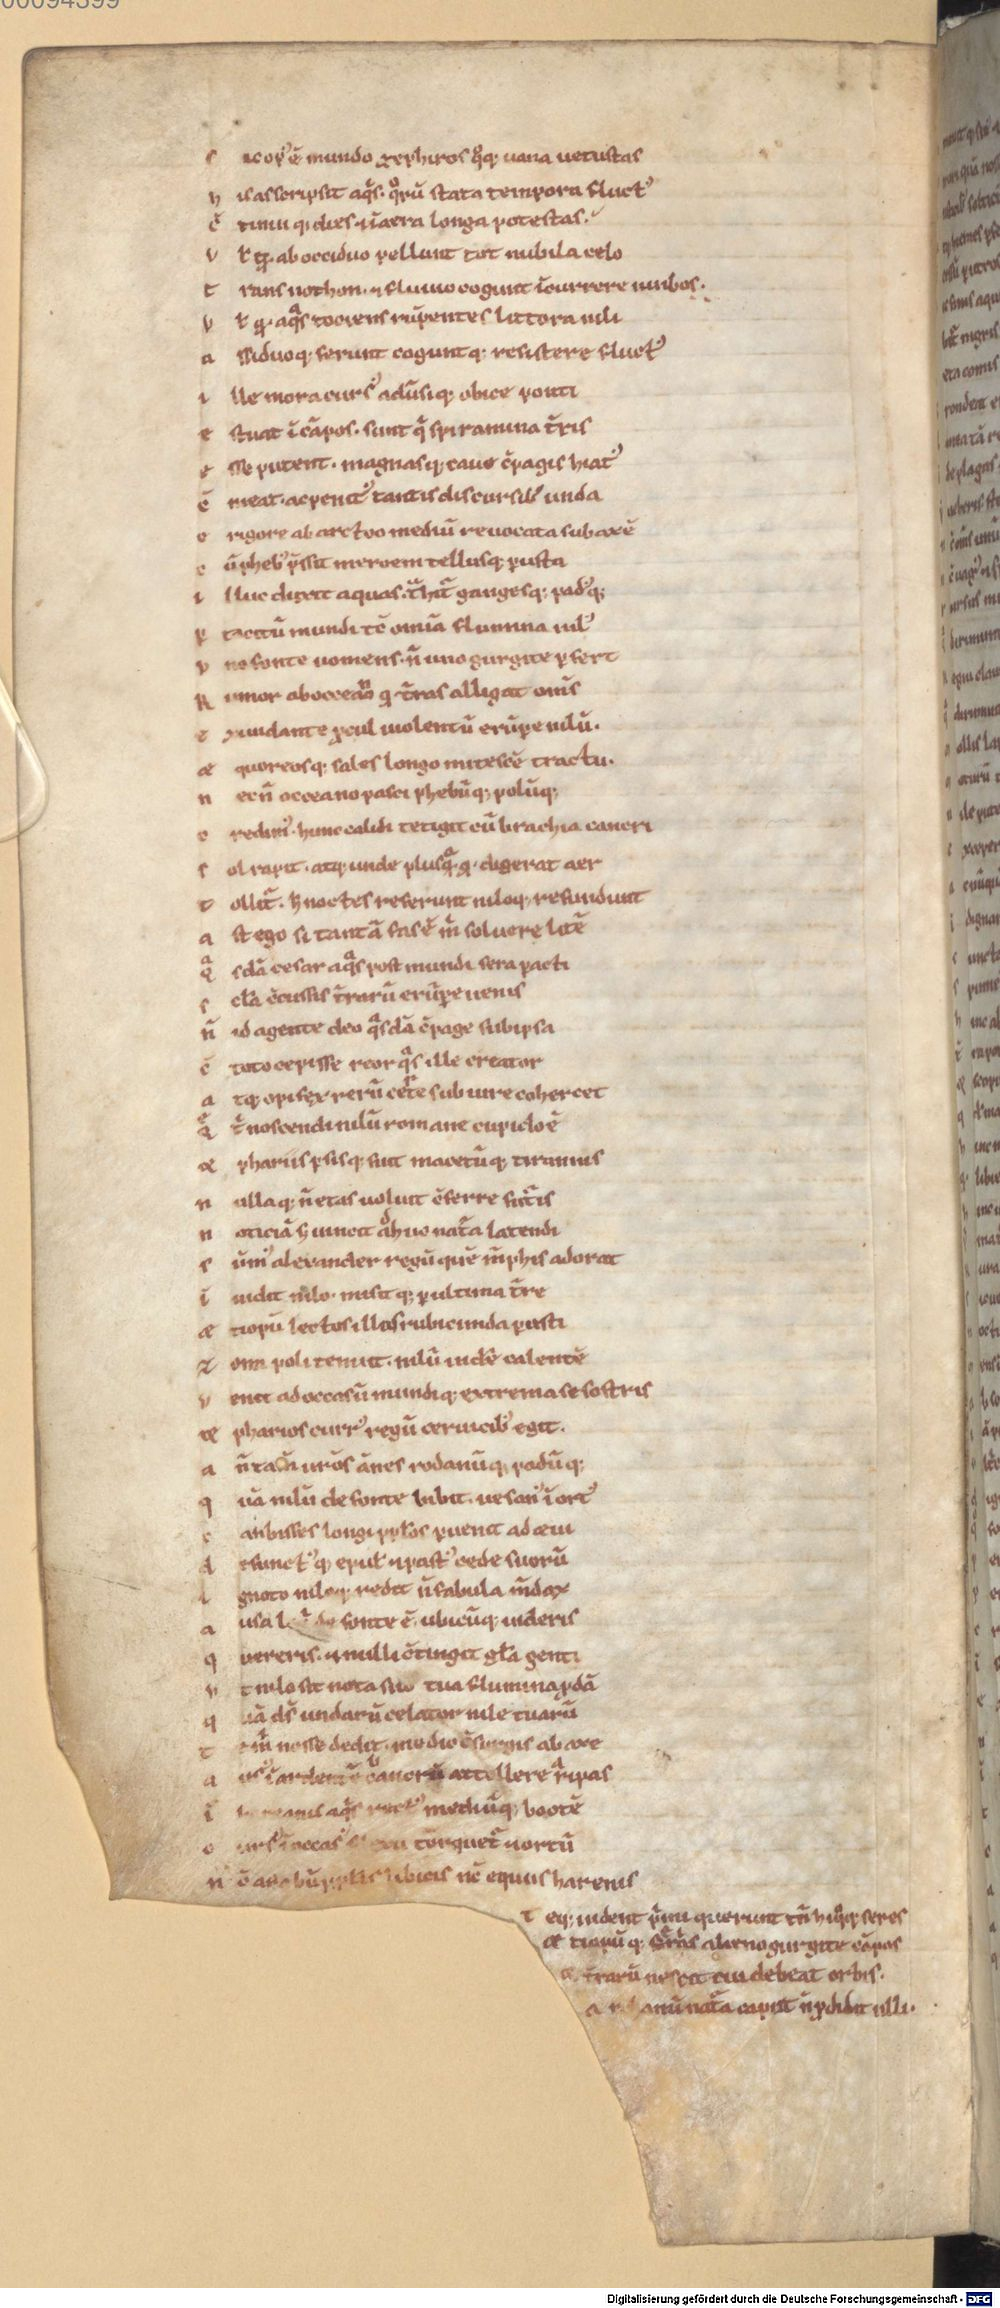 00094399
s icop̄ ē mundo zephiros qͦq; uana uetustas
h is asscripsit aqͣs. qͦrū stata tempora fluct᾽
c̄ tinui q; dies. ī aera longa potestas.
v t qͥ. ab occiduo pellunt tot nubila celo
t rans nothon. ⁊ fluuio cogunt īcurrere nimbos.
v t qͥ. aqͣs tociens rūpentes littora nili
a ssiduoq; ferunt cogunt q; resistere fluct᾽
i lle mora curs᾽ aduˉsiq; obice ponti
e stuat ī cāpos. sunt qͥ spiramina t̄ris
e sse putent. magnasq; caue c̄pagis hiat᾽
c̄ meat. ac penit᾽ tacitis discursib᾽ unda
f rigore ab arctoo mediū reuocata sub axē
c ū pheb᾽ p̄ssit meroem tellusq; pusta
i lluc duxit aquas. tͣhit᾽ gangesq; pad᾽q;
p tacitū mundi tc̄ omīa flumina nil᾽
v no fonte uomens. n̄ uno gurgite ꝑfert
R umor ab occeano qͥ t̄ras alligat om̄s
e xundante ꝓcul uiolentū erūpe nilū.
æ quoreosq; sales longo mitescē tractu.
n ec n̄ occeano pasci phebūq; polūq;
c redim᾽. hunc calidi tetigit cū brachia cancri
s ol rapit. atq; unde plusqͣ. qͣ digerat aer
t ollit᾽. h̄ noctes referunt niloq; refundunt
a st ego si tantā fas ē m̄ soluere litē
qͣ sdā cesar aqͣs post mundi sera pacti
s cl̄a c̄cussis t̄rarū erūpe uenis
n̄ id agente deo qͣsdā c̄page sub ipsa
c̄ toto cepisse reor qͣs ille creator
a tq; opifex rerū certo sub iure cohercet
qͤ t̄ noscendi nilū romane cupido ē
æ phariis psisq; fuit macetūq; tirannis
n ullaq; n̄ etas uoluit c̄ferre fut᾽is
n oticiā s; uincit adhuc natͣa latendi
s um᾽ alexander regū quē m̄phis adorat
ī uidit nilo. misit q; ꝑ ultima t̄re
æ tiopū lectos illos rubicunda pusti
z ona poli tenuit. nilū uidere calentē
v enit ad occasū mundiq; extrema sesostris
æ pharios curr᾽ regū ceruicib᾽ egit.
a n̄ tam̄ uros ānes rodanūq; padūq;
q uā nilū de fonte bibit. uesan᾽ ī ort᾽
c anbisses longi pp̄los puenit ad æui
d efunct᾽q; epul᾽ ⁊ past᾽ cede suorū
i gnoto niloq; redit n̄ fabula m̄dax
a usa loqͥ de fonte ē. ubicūq; uideris
q uereris. ⁊ nulli c̄tingit gl̄a genti
v t nilo sit nota suo tua flumina ꝓdā
q uā d͞s undarū celator nile tuarū
t e m̄ nosse dedit. medio c̄surgis ab axe
a us᾽ ī ardentē cancrū attollere ripas
ī boreanis aqͣs rect᾽ mediūq; bootē
c urs᾽ ī occas᾽ flexu torquet᾽ ⁊ ortū
N c̄ arabū pp̄lis libicis nc̄ equus harenis
t eq; uident p̄mi querunt tn̄ hiqͦq; seres
æ tiopūq; feras alieno gurgite cāpos
t̄rarū nescit cui debeat orbis.
a rchanū natͣa caput n̄ ꝓdidit ulli.
Digitalisierung gefördert durch die Deutsche Forschungsgemeinschaft - DFG